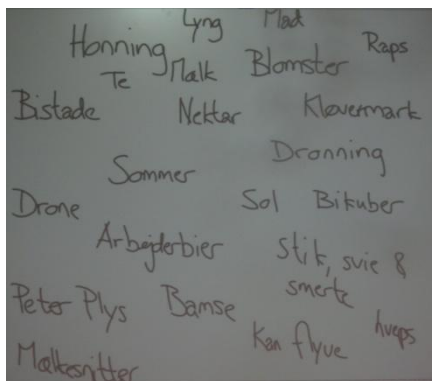 Lyng Mad
Honning Blomster Raps
Te Mælk
Bistade Nektar Kløvermark
Sommer Dronning
Drone Sol Bikuber
Arbejderbier Stik, svie &
smerte
Peter Plys Bamse
Kan flyve hveps
Mælkesnitter